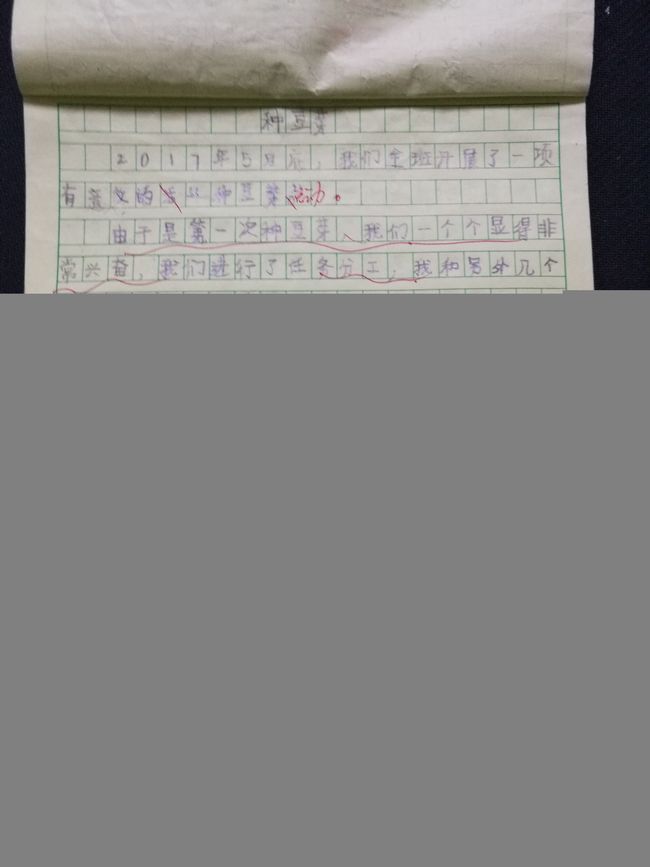 种豆芽
2017年5月底,我们全班开展了一项
有意义的 种豆芽活动。
由于是第一次种豆芽、我们一个个显得非
常兴奋,我们进行了任务分工,我和另外几个